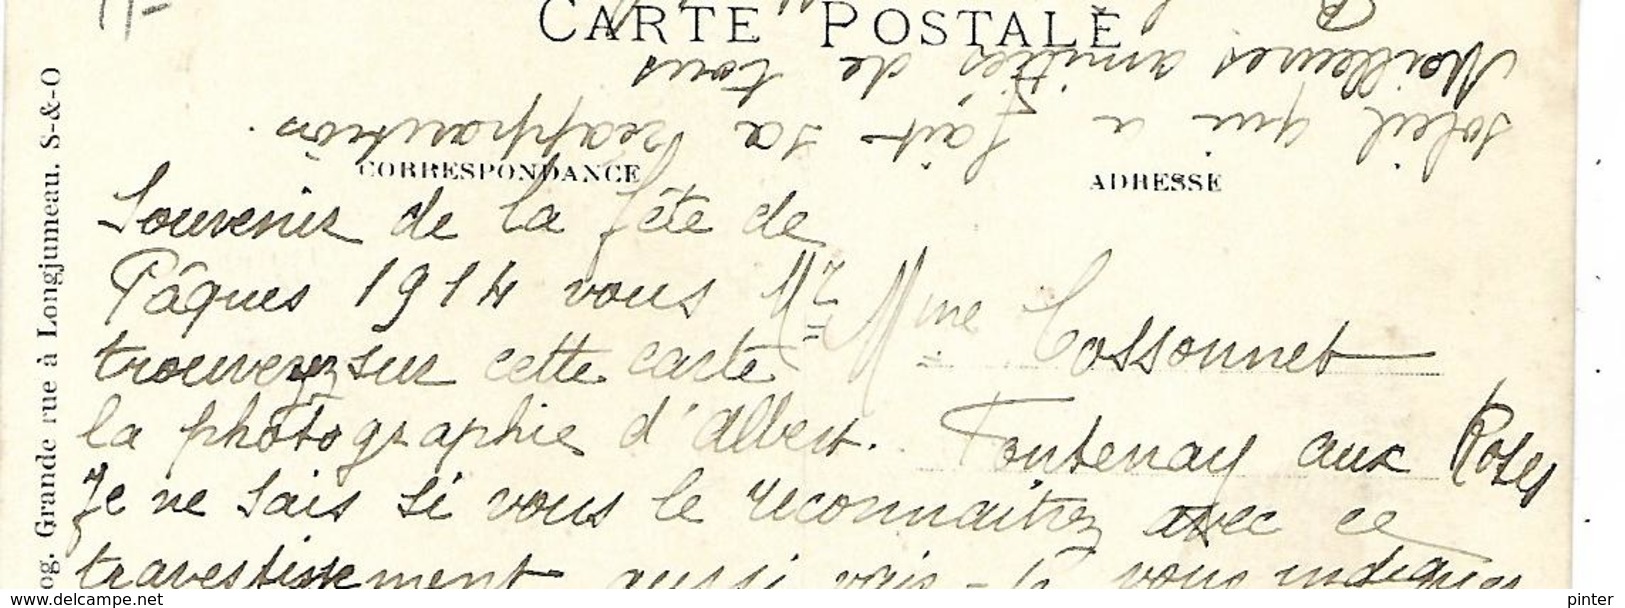 CARTE POSTALE
Meilleures amitiés de tous
soleil qui a fait sa réapparition.
CORRESPONDANCE
ADRESSE
Souvenir de la fête de
Pâques 1914 vous
trouverez sur cette carte
la photographie d'Albert.
Mr Mme Cossonnet
Fontenay aux Roses
Je ne sais si vous le reconnaitrez avec ce
travestissement aussi vais-je vous indiquer
og. Grande rue à Longjumeau. S-&-O
www.delcampe.net
pinter